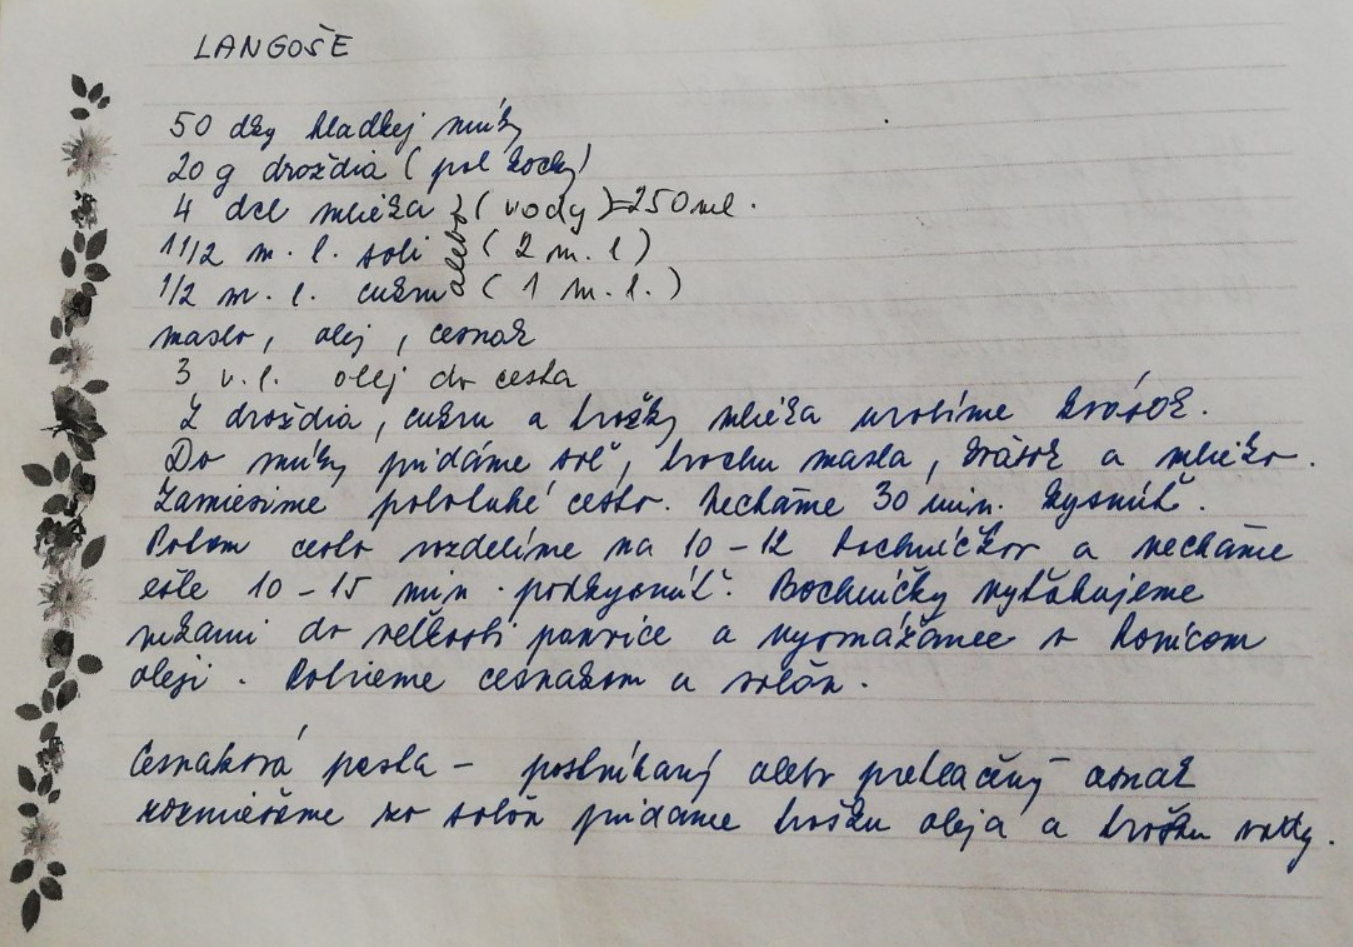 LANGOŠE
50 dkg hladkej múky
20 g droždia (pol kocky)
4 dcl mlieka } (vody) = 250 ml.
1 1/2 m. l. soli alebo (2 m. l)
1/2 m. l. cukru (1 m. l.)
maslo, olej, cesnak
3 v. l. olej do cesta
Z droždia, cukru a trošky mlieka urobíme kvások.
Do múky pridáme soľ, trochu masla, kvások a mlieko.
Zamiesime polotuhé cesto. Necháme 30 min. kysnúť.
Potom cesto rozdelíme na 10 - 12 bochníčkov a necháme
ešte 10 - 15 min. podkysnúť. Bochníčky vyťahujeme
rukami do veľkosti panvice a vysmážame v horúcom
oleji. Potrieme cesnakom a soľou.
Cesnaková pasta - postrúhaný alebo pretlačený cesnak
rozmiešame so soľou pridáme trošku oleja a trošku vody.